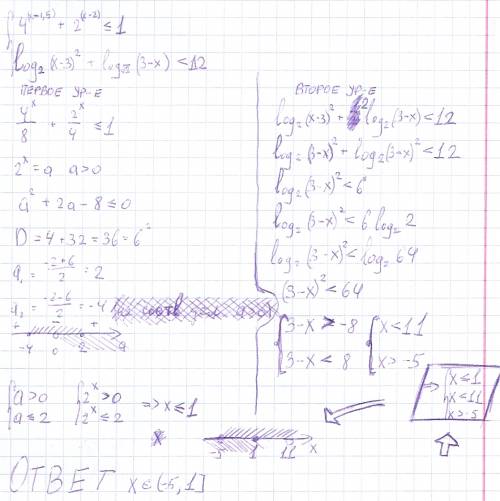 4^(x-1,5) + 2^(x-2) ≤ 1
log₂ (x-3)² + (3-x) < 12
ПЕРВОЕ УР-Е
4^x/8 + 2^x/4 ≤ 1
2^x = a a>0
a² + 2a - 8 ≤ 0
D = 4 + 32 = 36 = 6²
a₁ = (-2+6)/2 = 2
a₂ = (-2-6)/2 = -4
+ - +
-4 0 2 a
{a>0 {2^x>0
{a≤2 {2^x≤2 => x ≤ 1
ВТОРОЕ УР-Е
log₂ (x-3)² + 2 log₂ (3-x) < 12
log₂ (3-x)² + log₂ (3-x)² < 12
log₂ (3-x)² < 6
log₂ (3-x)² < 6 log₂ 2
log₂ (3-x)² < log₂ 64
(3-x)² < 64
{3-x > -8 {x < 11
{3-x < 8 {x > -5
=> {x ≤ 1
x < 11
x > -5
-5 1 11 x
ОТВЕТ x ∈ (-5, 1]